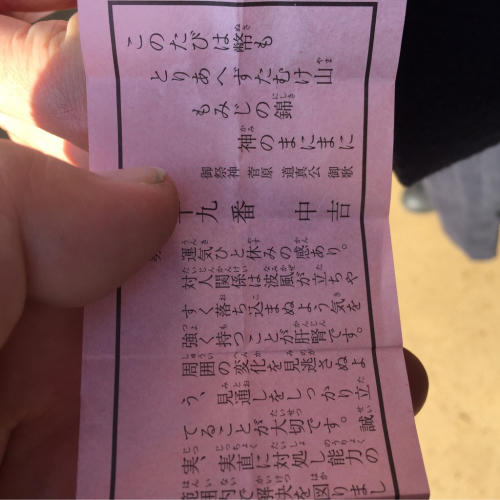 このたびは幣も
とりあへずたむけ山
もみじの錦
神のまにまに
御祭神 菅原 道真公 御歌
十九番 中吉
運気ひと休みの感あり。
対人関係は波風が立ちや
すく落ち込まぬよう気を
強く持つことが肝腎です。
周囲の変化を見逃さぬよ
う、見通しをしっかり立
てることが大切です。誠
実、実直に対処し能力の
範囲内で解決を図りまし